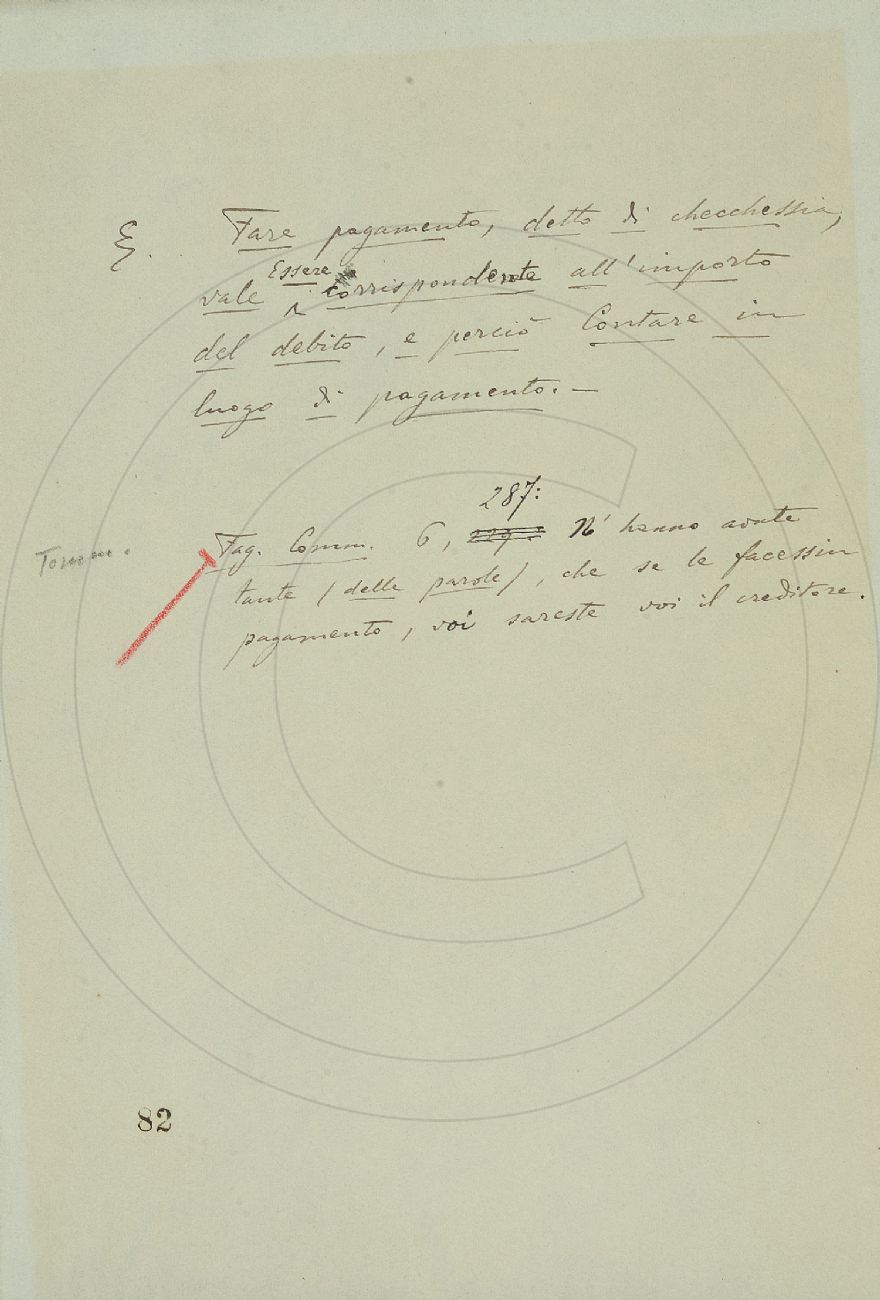 §. Fare pagamento, detto di checchessia,
vale Essere corrispondente all'importo
del debito, e perciò Contare in
luogo di pagamento. —
287:
Tomm.
Fag. Comm. 6, 229. N' hanno avute
tante (delle parole), che se le facessin
pagamento, voi sareste voi il creditore.
82